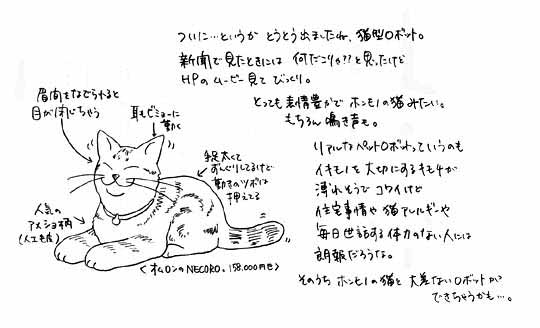 ついに…というか とうとう出ましたね、猫型ロボット。
新聞で見たときには 何だこりゃ?? と思ったけど
HPのムービー見て びっくり。
とっても表情豊かで ホンモノの猫みたい。
もちろん 鳴き声も。
リアルなペットロボットっていうのも
イキモノを大切にするキモチが
薄れそうで コワイけど
住宅事情や 猫アレルギーや
毎日世話する 体力のない人には
朗報だろうな。
そのうち ホンモノの猫と 大差ないロボットが
できちゃうかも…。
眉間をなでられると
目が閉じちゃう
耳もビミョーに
動く
足太くて
ずんぐりしてるけど
動きのツボは
押えてる
人気の
アメショ柄
(人工毛皮)
<オムロンのNECORO。158,000円也>